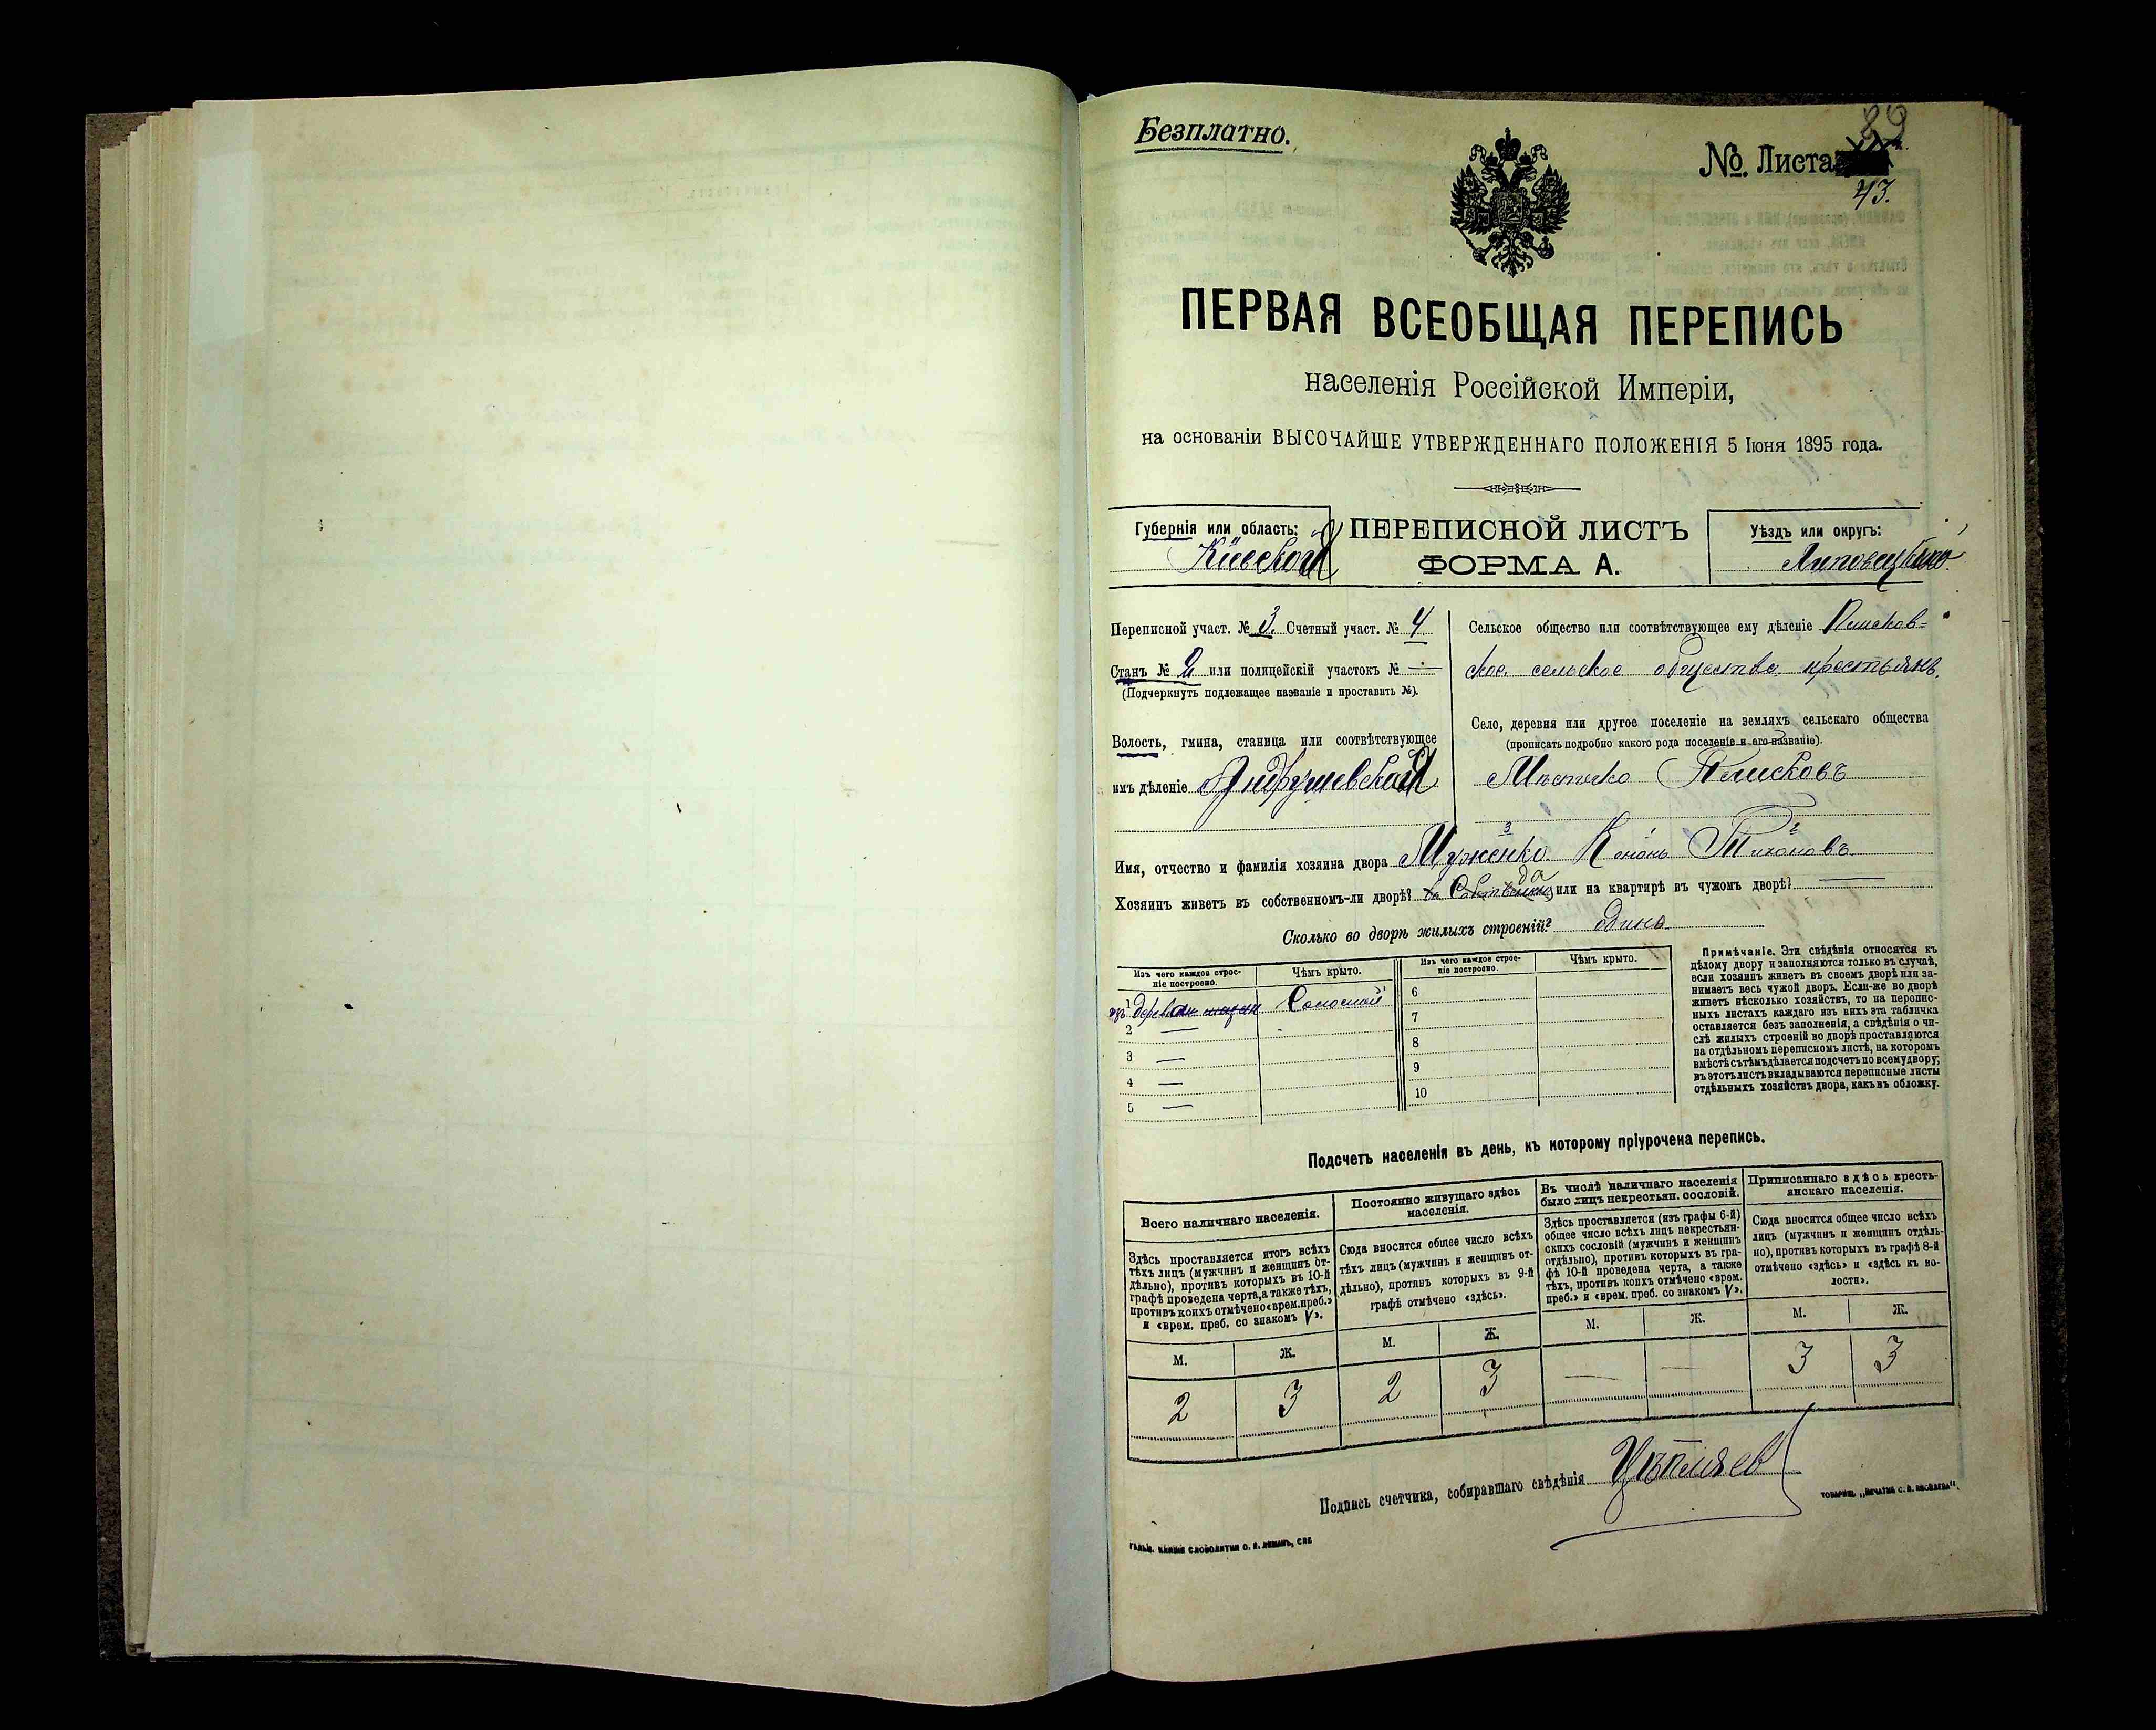 Безплатно.
89
№. Листа
43.
ПЕРВАЯ ВСЕОБЩАЯ ПЕРЕПИСЬ
населенія Россійской Имперіи,
на основаніи ВЫСОЧАЙШЕ УТВЕРЖДЕННАГО ПОЛОЖЕНІЯ 5 Іюня 1895 года.
Губернія или область:
Кіевская
ПЕРЕПИСНОЙ ЛИСТЪ
ФОРМА А.
Уѣздъ или округъ:
Липовецкій
Переписной участ. № 3. Счетный участ. № 4
Станъ № 2 или полицейскій участокъ № —
(Подчеркнуть подлежащее названіе и проставить №).
Волость, гмина, станица или соотвѣтствующее
имъ дѣленіе Андрушевская
Сельское общество или соотвѣтствующее ему дѣленіе Плисков=
ское сельское общество крестьянъ.
Село, деревня или другое поселеніе на земляхъ сельскаго общества
(прописать подробно какого рода поселеніе и его названіе).
Мѣстечко Плисковъ
Имя, отчество и фамилія хозяина двора Муженко Кононъ Тихоновъ
Хозяинъ живетъ въ собственномъ-ли дворѣ? да или на квартирѣ въ чужомъ дворѣ? —
Сколько во дворѣ жилыхъ строеній? одино
Изъ чего каждое строе-
ніе построено.
Чѣмъ крыто.
Изъ чего каждое строе-
ніе построено.
Чѣмъ крыто.
1 изъ дерева Соломой
2 —
3 —
4 —
5 —
6
7
8
9
10
Примѣчаніе. Эти свѣдѣнія относятся къ
цѣлому двору и заполняются только въ случаѣ,
если хозяинъ живетъ въ своемъ дворѣ или за-
нимаетъ весь чужой дворъ. Если-же во дворѣ
живетъ нѣсколько хозяйствъ, то на перепис-
ныхъ листахъ каждаго изъ нихъ эта табличка
оставляется безъ заполненія, а свѣдѣнія о чи-
слѣ жилыхъ строеній во дворѣ проставляются
на отдѣльномъ переписномъ листѣ, на которомъ
вмѣстѣ съ тѣмъ дѣлается подсчетъ по всему двору;
въ этотъ листъ вкладываются переписные листы
отдѣльныхъ хозяйствъ двора, какъ въ обложку.
Подсчетъ населенія въ день, къ которому пріурочена перепись.
Всего наличнаго населенія.
Здѣсь проставляется итогъ всѣхъ
тѣхъ лицъ (мужчинъ и женщинъ от-
дѣльно), противъ которыхъ въ 10-й
графѣ проведена черта, а также тѣхъ,
противъ коихъ отмѣчено «врем. преб.»
и «врем. преб. со знакомъ V».
М. Ж.
2 3
Постоянно живущаго здѣсь
населенія.
Сюда вносится общее число всѣхъ
тѣхъ лицъ (мужчинъ и женщинъ от-
дѣльно), противъ которыхъ въ 9-й
графѣ отмѣчено «здѣсь».
М. Ж.
2 3
Въ числѣ наличнаго населенія
было лицъ некрестьян. сословій.
Здѣсь проставляется (изъ графы 6-й)
общее число всѣхъ лицъ некрестьян-
скихъ сословій (мужчинъ и женщинъ
отдѣльно), противъ которыхъ въ гра-
фѣ 10-й проведена черта, а также
тѣхъ, противъ коихъ отмѣчено «врем.
преб.» и «врем. преб. со знакомъ V».
М. Ж.
— —
Приписаннаго здѣсь кресть-
янскаго населенія.
Сюда вносится общее число всѣхъ
лицъ (мужчинъ и женщинъ отдѣль-
но), противъ которыхъ въ графѣ 8-й
отмѣчено «здѣсь» и «здѣсь къ во-
лости».
М. Ж.
3 3
Подпись счетчика, собиравшаго свѣдѣнія